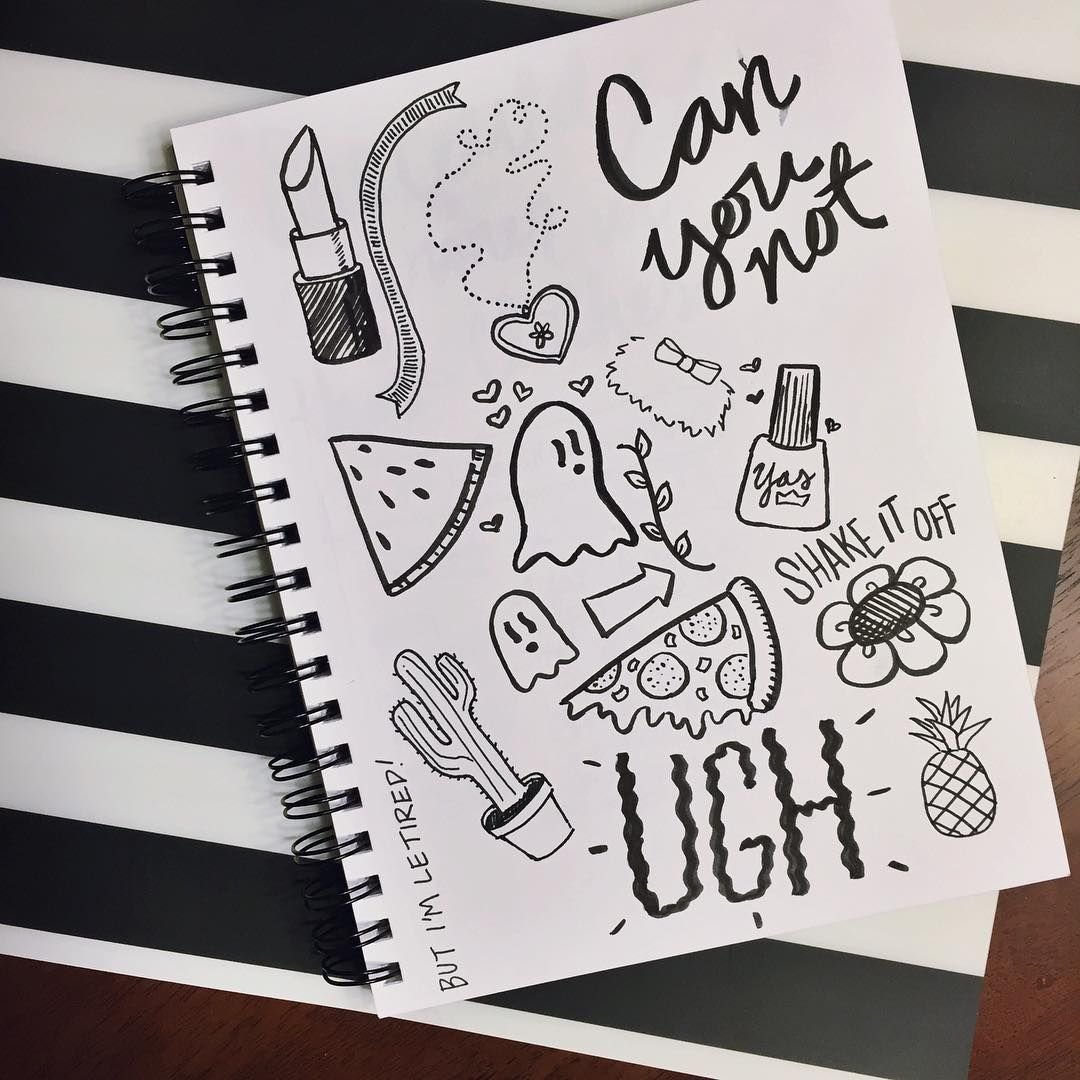 Can
you
not
Yas
SHAKE IT OFF
UGH
BUT I'M LE TIRED!